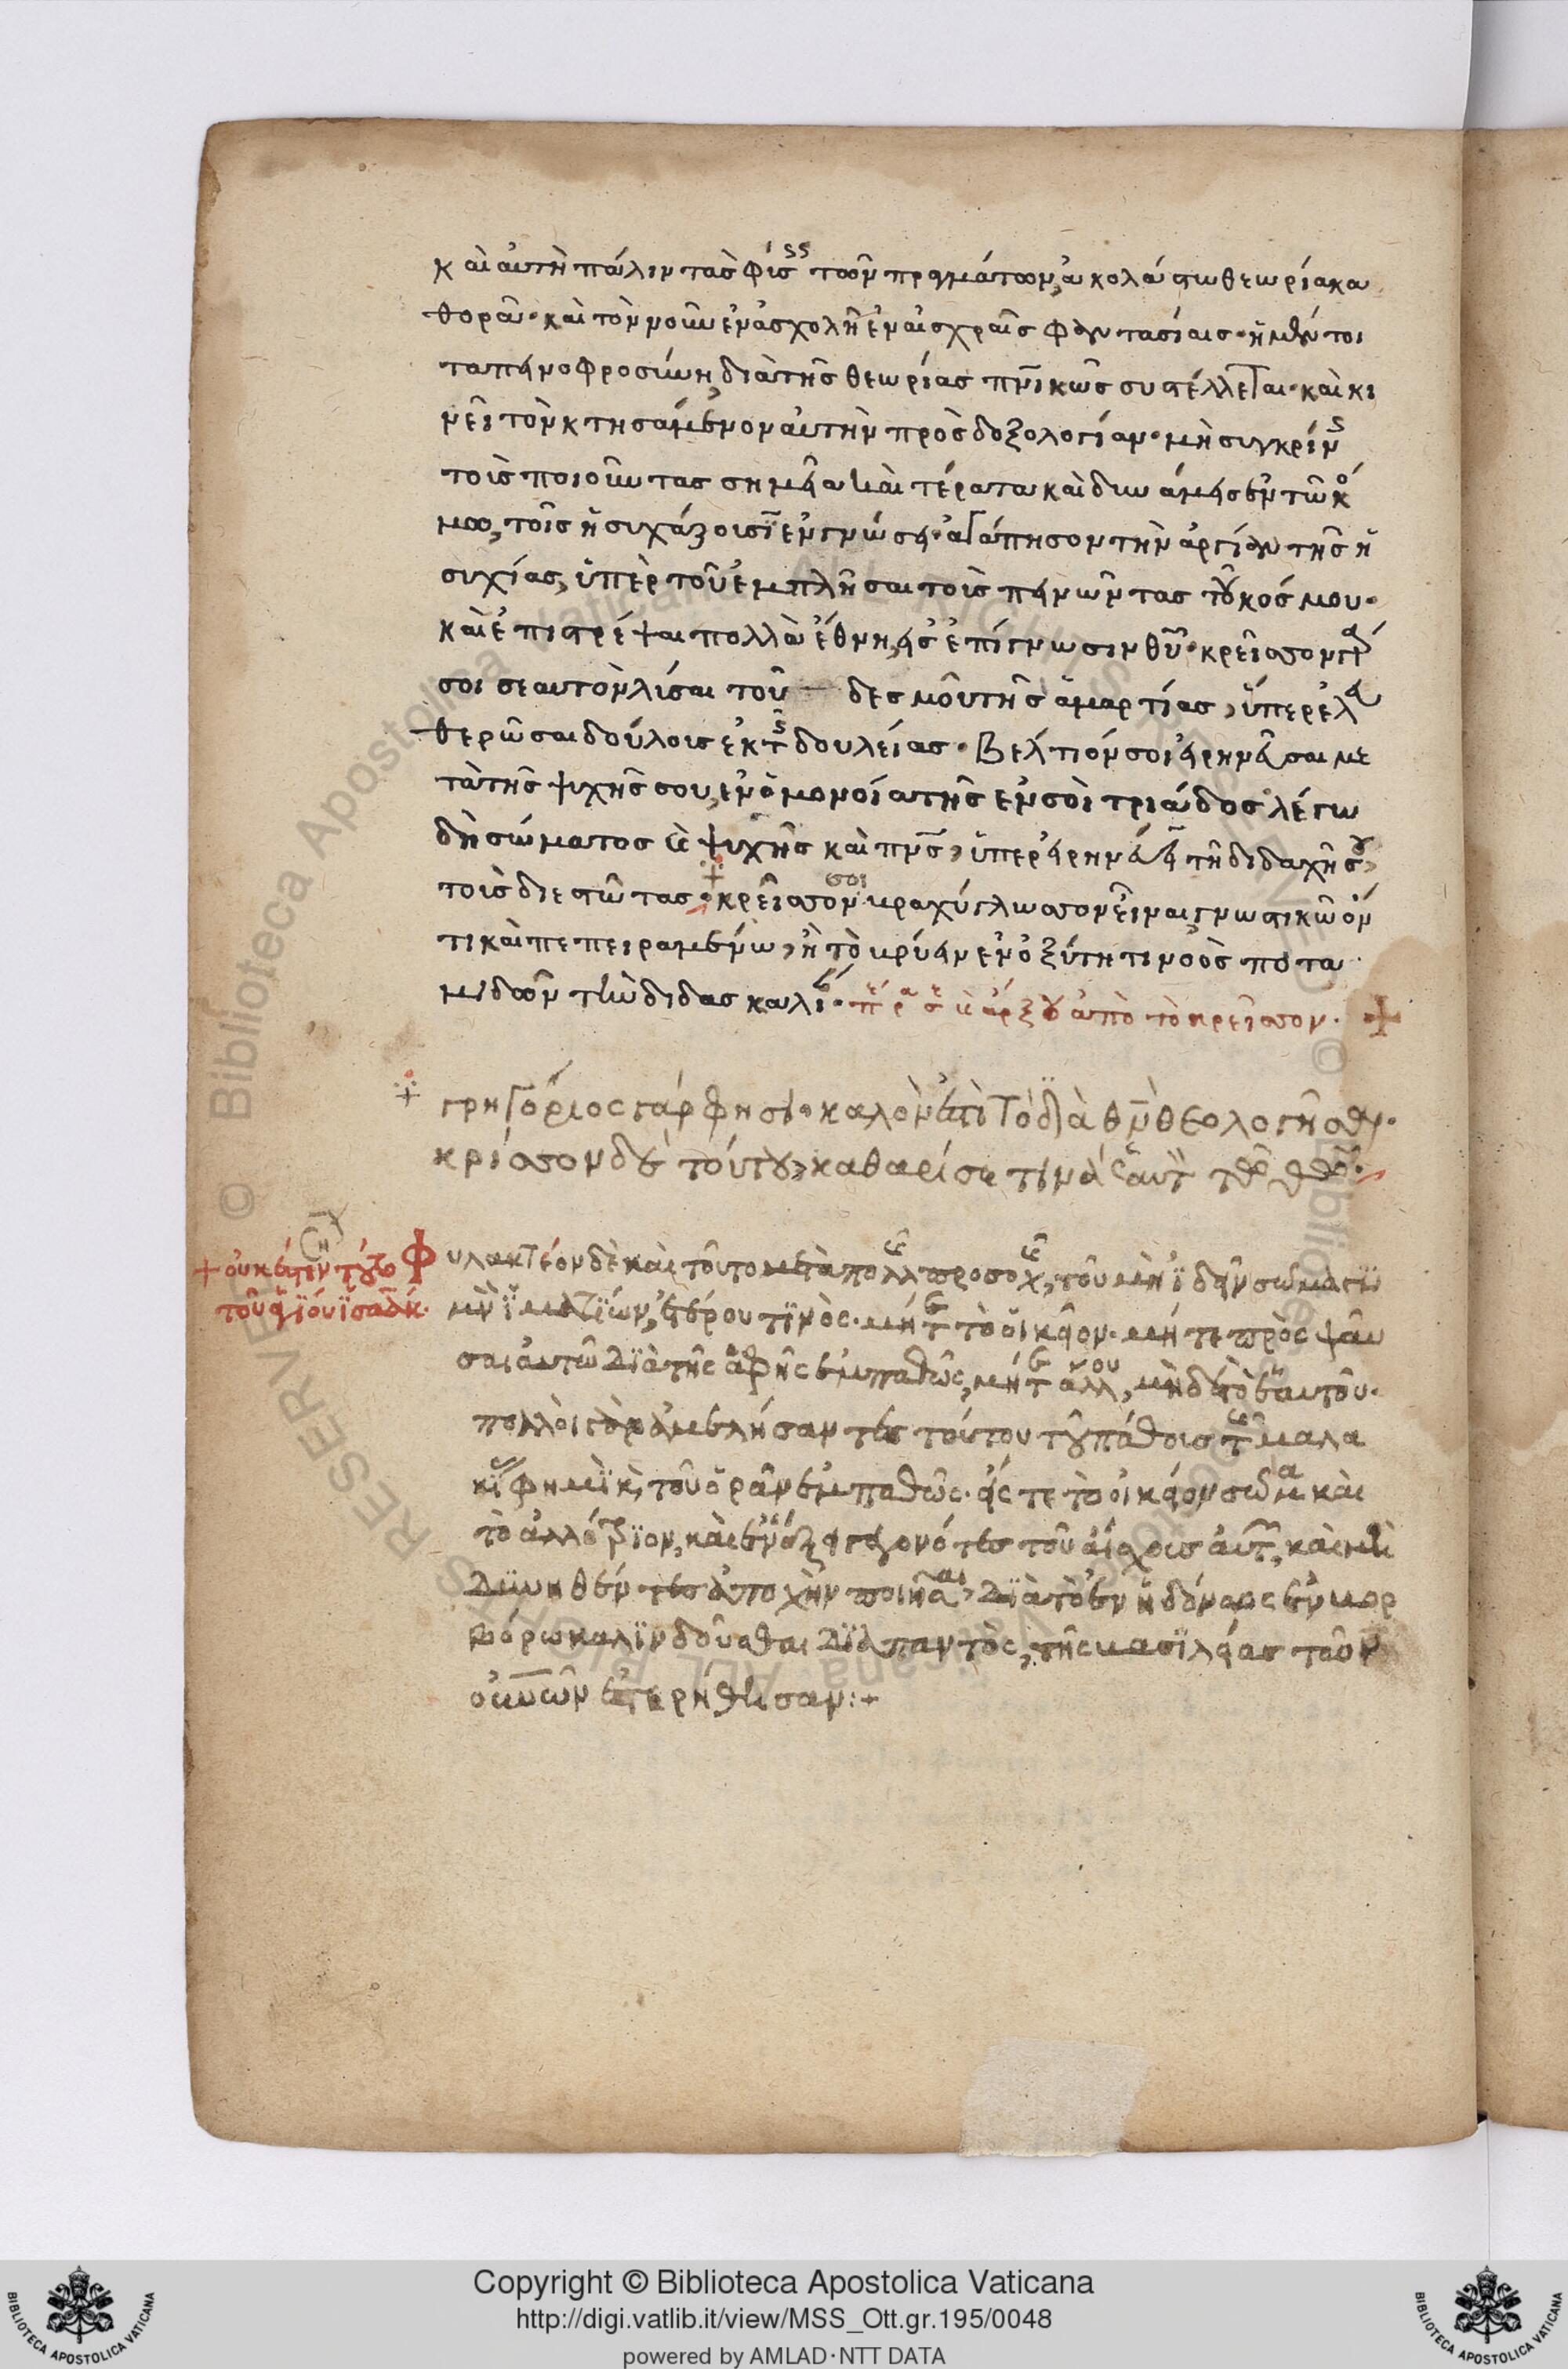 καὶ αὐτὴ πάλιν τὰς φύσεις τῶν πραγμάτων, ἀκολάστω θεωρία κα
θορᾶν· καὶ τὸν νοῦν ἐνασχολῆ ἐν αἰσχραῖς φαντασίαις· ἡ μέντοι
ταπεινοφροσύνη, διὰ τῆς θεωρίας πνικῶς συστέλλεται· καὶ κι
νεῖ τὸν κτησάμενον αὐτὴν πρὸς δοξολογίαν· μὴ συγκρίνης
τοὺς ποιοῦντας σημεῖα καὶ τέρατα καὶ δυνάμεις ἐν τῶ κό
μω, τοῖς ἡσυχάζουσιν ἐν γνώσει· ἀγάπησον τὴν ἀργίαν τῆς ἡ
συχίας, ὑπὲρ τοῦ ἐμπλῆσαι τοὺς πεινῶντας τοῦ κόσμου·
καὶ ἐπιστρέψαι πολλὰ ἔθνη, εἰς ἐπίγνωσιν θυ· κρεῖσσον
σοι σεαυτὸν λῦσαι τοῦ — δεσμοῦ τῆς ἁμαρτίας, ὑπὲρ ἐλευ
θερῶσαι δούλους ἐκ τῆς δουλείας· Βέλτιόν σοι εἰρηνεῦσαι με
τὰ τῆς ψυχῆς σου, ἐν ὁμονοία τῆς ἐν σοὶ τριάδος λέγω
δὴ σώματος καὶ ψυχῆς καὶ πνς, ὑπὲρ εἰρηνεύειν τῆ διδαχῆ σου,
τοὺς διεστῶτας· κρεῖσσον σοι βραχύγλωσσον εἶναι γνωστικῶ ὄν
τι καὶ πεπειραμένω, ἢ τὸ βρύειν ἐν ὀξύτητι νοὸς ποτα
μηδῶν τὴν διδασκαλίαν· καὶ ἄρξου ἀπὸ τὸ κρεῖσσον. +
+ γρηγόριος γάρ φησι· καλὸν ἐστὶ τὸ διὰ θν θεολογῆσαι·
κρίσσον δὲ τούτου, καθαρίση τινὰ ἑαυτὸν τῶ θω·
+ οὐκ ἔστιν τοῦτο
τοῦ ἁγίου ἰσαὰκ·
Φυλακτέον δὲ καὶ τοῦτο μετὰ πολλῆς προσοχῆς, τοῦ μὴ ἰδεῖν σῶμα γυ
μνὸν ἱματίων, ἑτέρου τινὸς· μήτε τὸ οἰκεῖον· μήτε προσψαῦ
σαι αὐτῶ διὰ τῆς ἁφῆς ἐμπαθῶς, μήτε ἄλλου, μηδὲ τὸ ἑαυτοῦ·
πολλοὶ γὰρ ἀμελήσαντες τούτου τοῦ πάθους τῆς μαλα
κίας φημὶ καὶ, τοῦ ὁρᾶν ἐμπαθῶς· εἴς τε τὸ οἰκεῖον σῶμα καὶ
τὸ ἀλλότριον, καὶ ἐν ἕξει γεγονότες τοῦ αἴσχους αὐτοῦ, καὶ μὴ
δυνηθέντες ἀποχὴν ποιῆσαι, διὰ τὸ ἐν ἡδόναις ἐν βορ
βόρω καλινδοῦσθαι διὰ παντὸς, τῆς βασιλείας τῶν
οὐνῶν ἐστερήθησαν:+
Copyright © Biblioteca Apostolica Vaticana
http://digi.vatlib.it/view/MSS_Ott.gr.195/0048
powered by AMLAD·NTT DATA
BIBLIOTECA APOSTOLICA VATICANA
BIBLIOTECA APOSTOLICA VATICANA